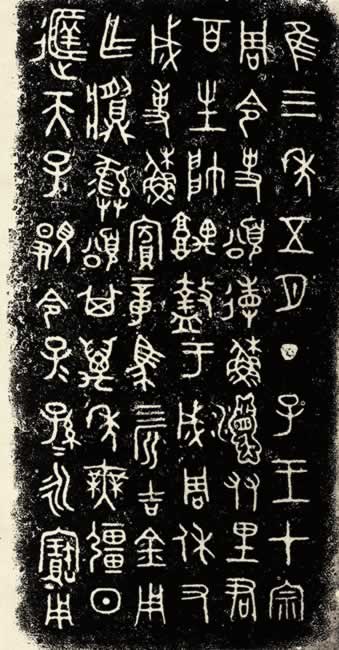 隹三年五月丁巳王才宗
周令史頌省穌友里君
百生帥盩于成周休又
成事穌賓章馬四匹吉金用
乍彝頌其萬年無疆日
天子覭令子子孫孫永寶用